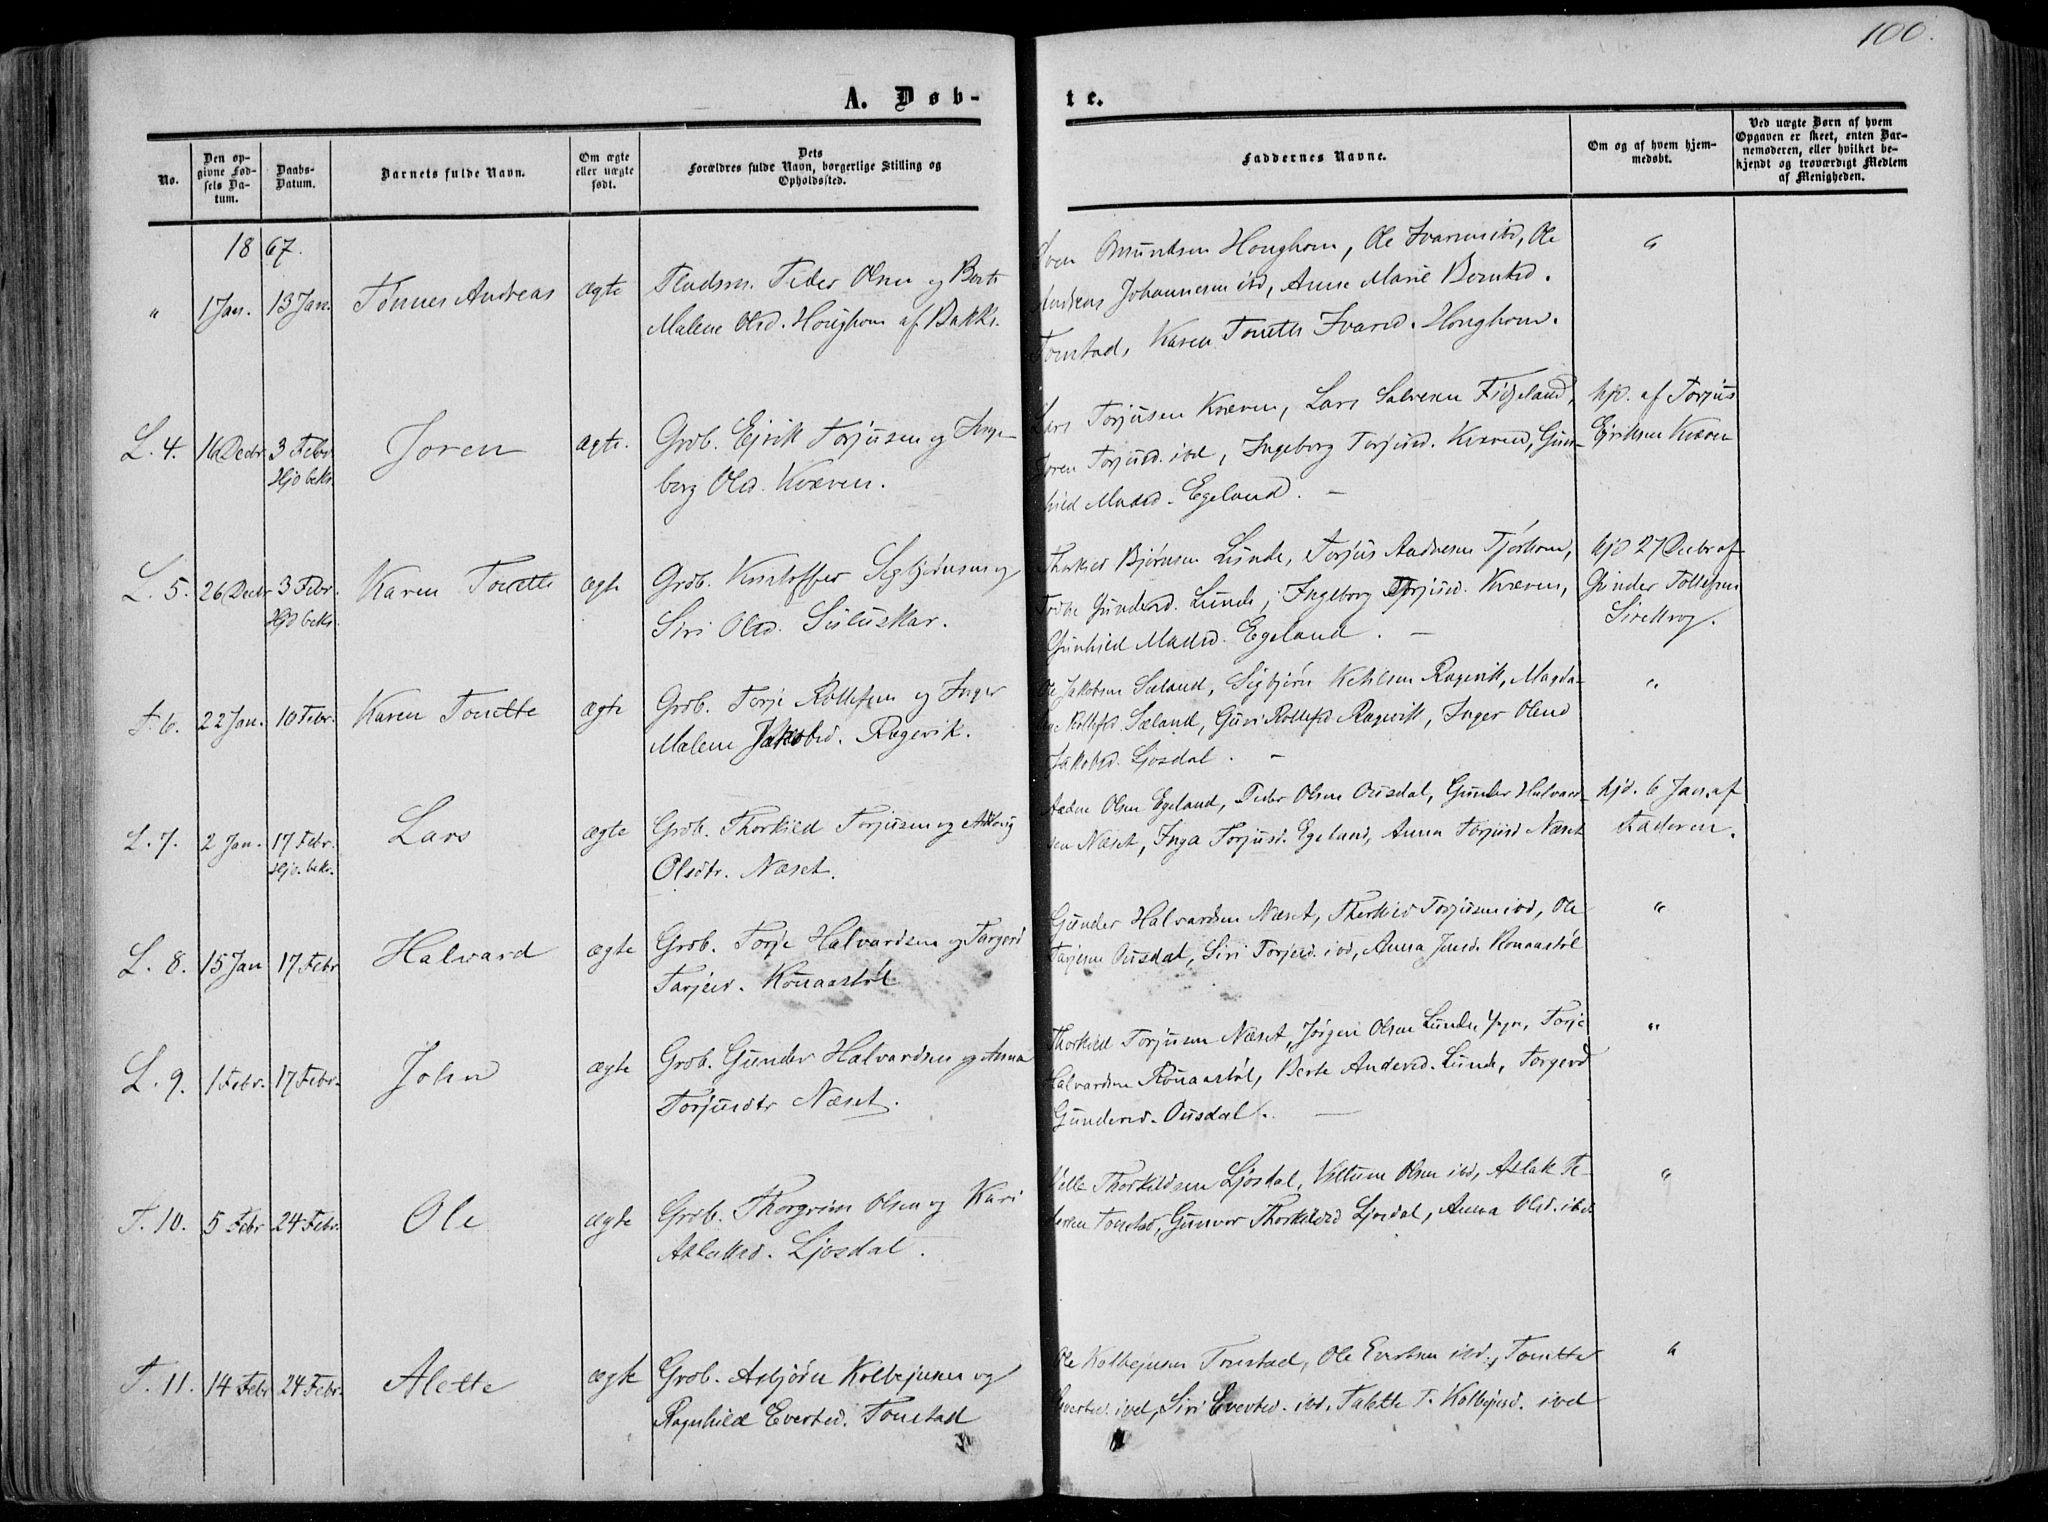 100.
A. Døb-
te.
No.
Den op-
givne Fød-
sels Da-
tum.
Daabs-
Datum.
Barnets fulde Navn.
Om ægte
eller uægte
født.
Dets
Forældres fulde Navn, borgerlige Stilling og
Opholdssted.
Faddernes Navne.
Om og af hvem hjem-
medøbt.
Ved uægte Børn af hvem
Opgaven er skeet, enten Bar-
nemoderen, eller hvilket be-
kjendt og troværdigt Medlem
af Menigheden.
1867.
" 1 Jan. 13 Jan. Tønnes Andreas ægte
Peder Olsen og
Malene Olsd. Houghom af Bakke.
Houghom, Ole Ivarsen ibd, Ole
Johannesen ibd, Anne Marie Berntsd.
Tonstad, Karen Tonette Ivarsd. Houghom.
"
L. 4. 16 Decbr 3 Febr Hjd bekr. Joren ægte.
Grdb. Ejrik Torjusen og Inge-
borg Olsd. Kvæven.
Lars Torjusen Kvæven, Lars Salvesen Fidjeland,
Joren Torjusd. ibd, Ingeborg Torjusd. Kvæven, Gun-
hild Madsd. Egeland. –
hjd. af Torjus
Ejriksen Kvæven
L. 5. 26 Decbr 3 Febr. Hjd bekr. Karen Tonette ægte
Grdb. Kristoffer Sigbjørnsen og
Siri Olsd. Suluskar.
Bjørnsen Lunde, Torjus Andersen Tjørhom,
Gundersd. Lunde, Ingeborg Torjusd. Kvæven,
Gunhild Madsd. Egeland. –
hjd 27 Decbr af
Gunder Tollefsen
Sirekrog.
T. 6. 22 Jan. 10 Febr. Karen Tonette ægte
Grdb. Torje Rollefsen og Inger
Malene Jakobsd. Røgevik.
Ole Jakobsen Sæland, Sigbjørn Ketilsen Røgevik, Magda-
lene Rollefsd. Sæland, Guri Rollefsd Røgevik, Inger Olene
Jakobsd. Ljosdal. –
"
L. 7. 2 Jan. 17 Febr. Hjd. bekr. Lars ægte
Grdb. Thorkild Torjusen og
Olsdtr. Næset.
Olsen Egeland, Peder Olsen Ousdal, Gunder Halvard-
sen Næset, Inga Torjusd. Egeland, Anna Torjusd Næset
hjd. 6 Jan. af
Faderen.
L. 8. 15 Jan 17 Febr Halvard ægte
Grdb. Torje Halvardsen og Torgerd
Tarjeisd. Ronaastøl
Gunder Halvardsen Næset, Thorkild Torjusen ibd, Ole
Tarjesen Ousdal, Siri Torjesd. ibd, Anna Jonsd. Ronaastøl
"
L. 9. 1 Febr. 17 Febr. John ægte
Grdb. Gunder Halvardsen og Anna
Torjusdtr Næset.
Thorkild Torjusen Næset, Jørgen Olsen Lunde, Torje
Halvardsen Ronaastøl, Berte Andersd. Lunde, Torgerd
Gundersd. Ousdal. –
"
T. 10. 5 Febr 24 Febr. Ole ægte
Grdb. Thorgrim Olsen og Kari
Aslaksd. Ljosdal.
Thorkildsen Ljosdal, Olsen ibd, Aslak Pe-
dersen Tonstad, Gunvor Thorkildsd Ljosdal, Anna Olsd. ibd
"
T. 11. 14 Febr 24 Febr. Alette ægte
Grdb. Asbjørn Kolbejnsen og
Ragnhild Evertsd. Tonstad
Ole Kolbejnsen Tonstad, Ole Evertsen ibd., Tonette
Evertsd. ibd, Siri Evertsd. ibd, Talette T. Kolbejnsd. ibd
"